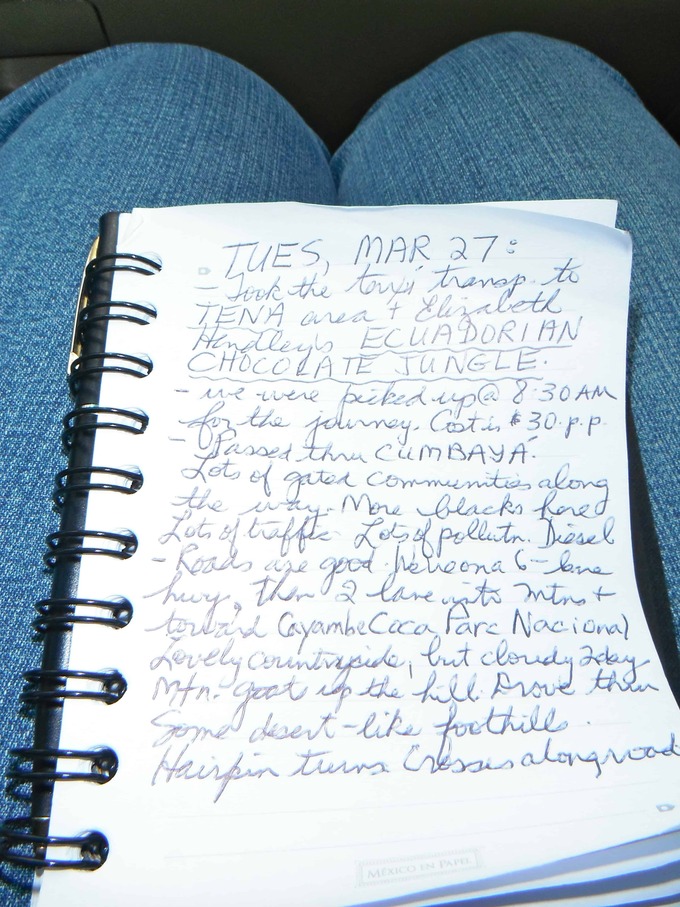 TUES, MAR 27:
- Took the taxi transp. to
TENA area + Elizabeth
Hendley's ECUADORIAN
CHOCOLATE JUNGLE.
- we were picked up @ 8:30 AM
for the journey. Cost is $30 p.p.
- Passed thru CUMBAYÁ.
Lots of gated communities along
the way. More blacks here
Lots of traffic Lots of pollutn. Diesel
- Roads are good. We're on a 6-lane
hwy, then 2 lane into mtns +
toward Cayambe Coca Parc Nacional
Lovely countryside, but cloudy 2day
Mtn. goats up the hill. Drove thru
Some desert-like foothills.
Hairpin turns Crosses along road
MÉXICO EN PAPEL